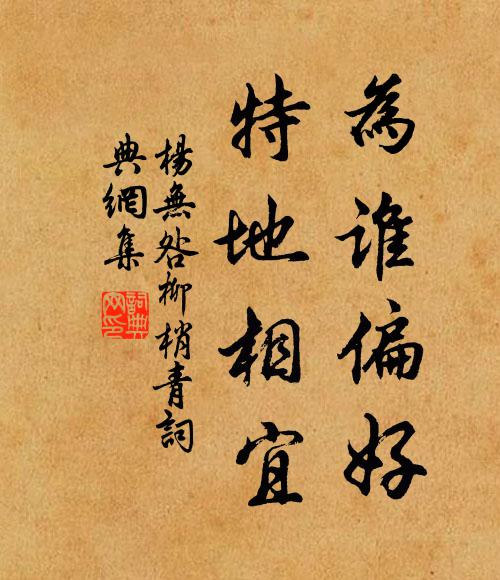 為誰偏好
特地相宜
楊無咎柳梢青詞
典網集
詞典
网印